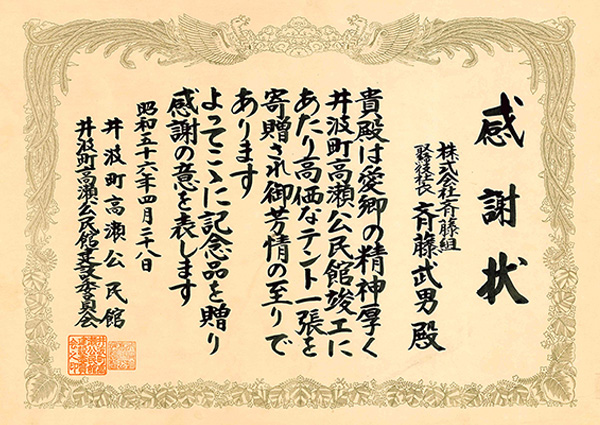 感謝状
株式会社斉藤組
取締役社長 斉藤武男殿
貴殿は愛郷の精神厚く
井波町高瀬公民館竣工に
あたり高価なテント一張を
寄贈され御芳情の至りで
あります
よってここに記念品を贈り
感謝の意を表します
昭和五十六年四月二十八日
井波町高瀬公民館
井波町高瀬公民館建設委員会